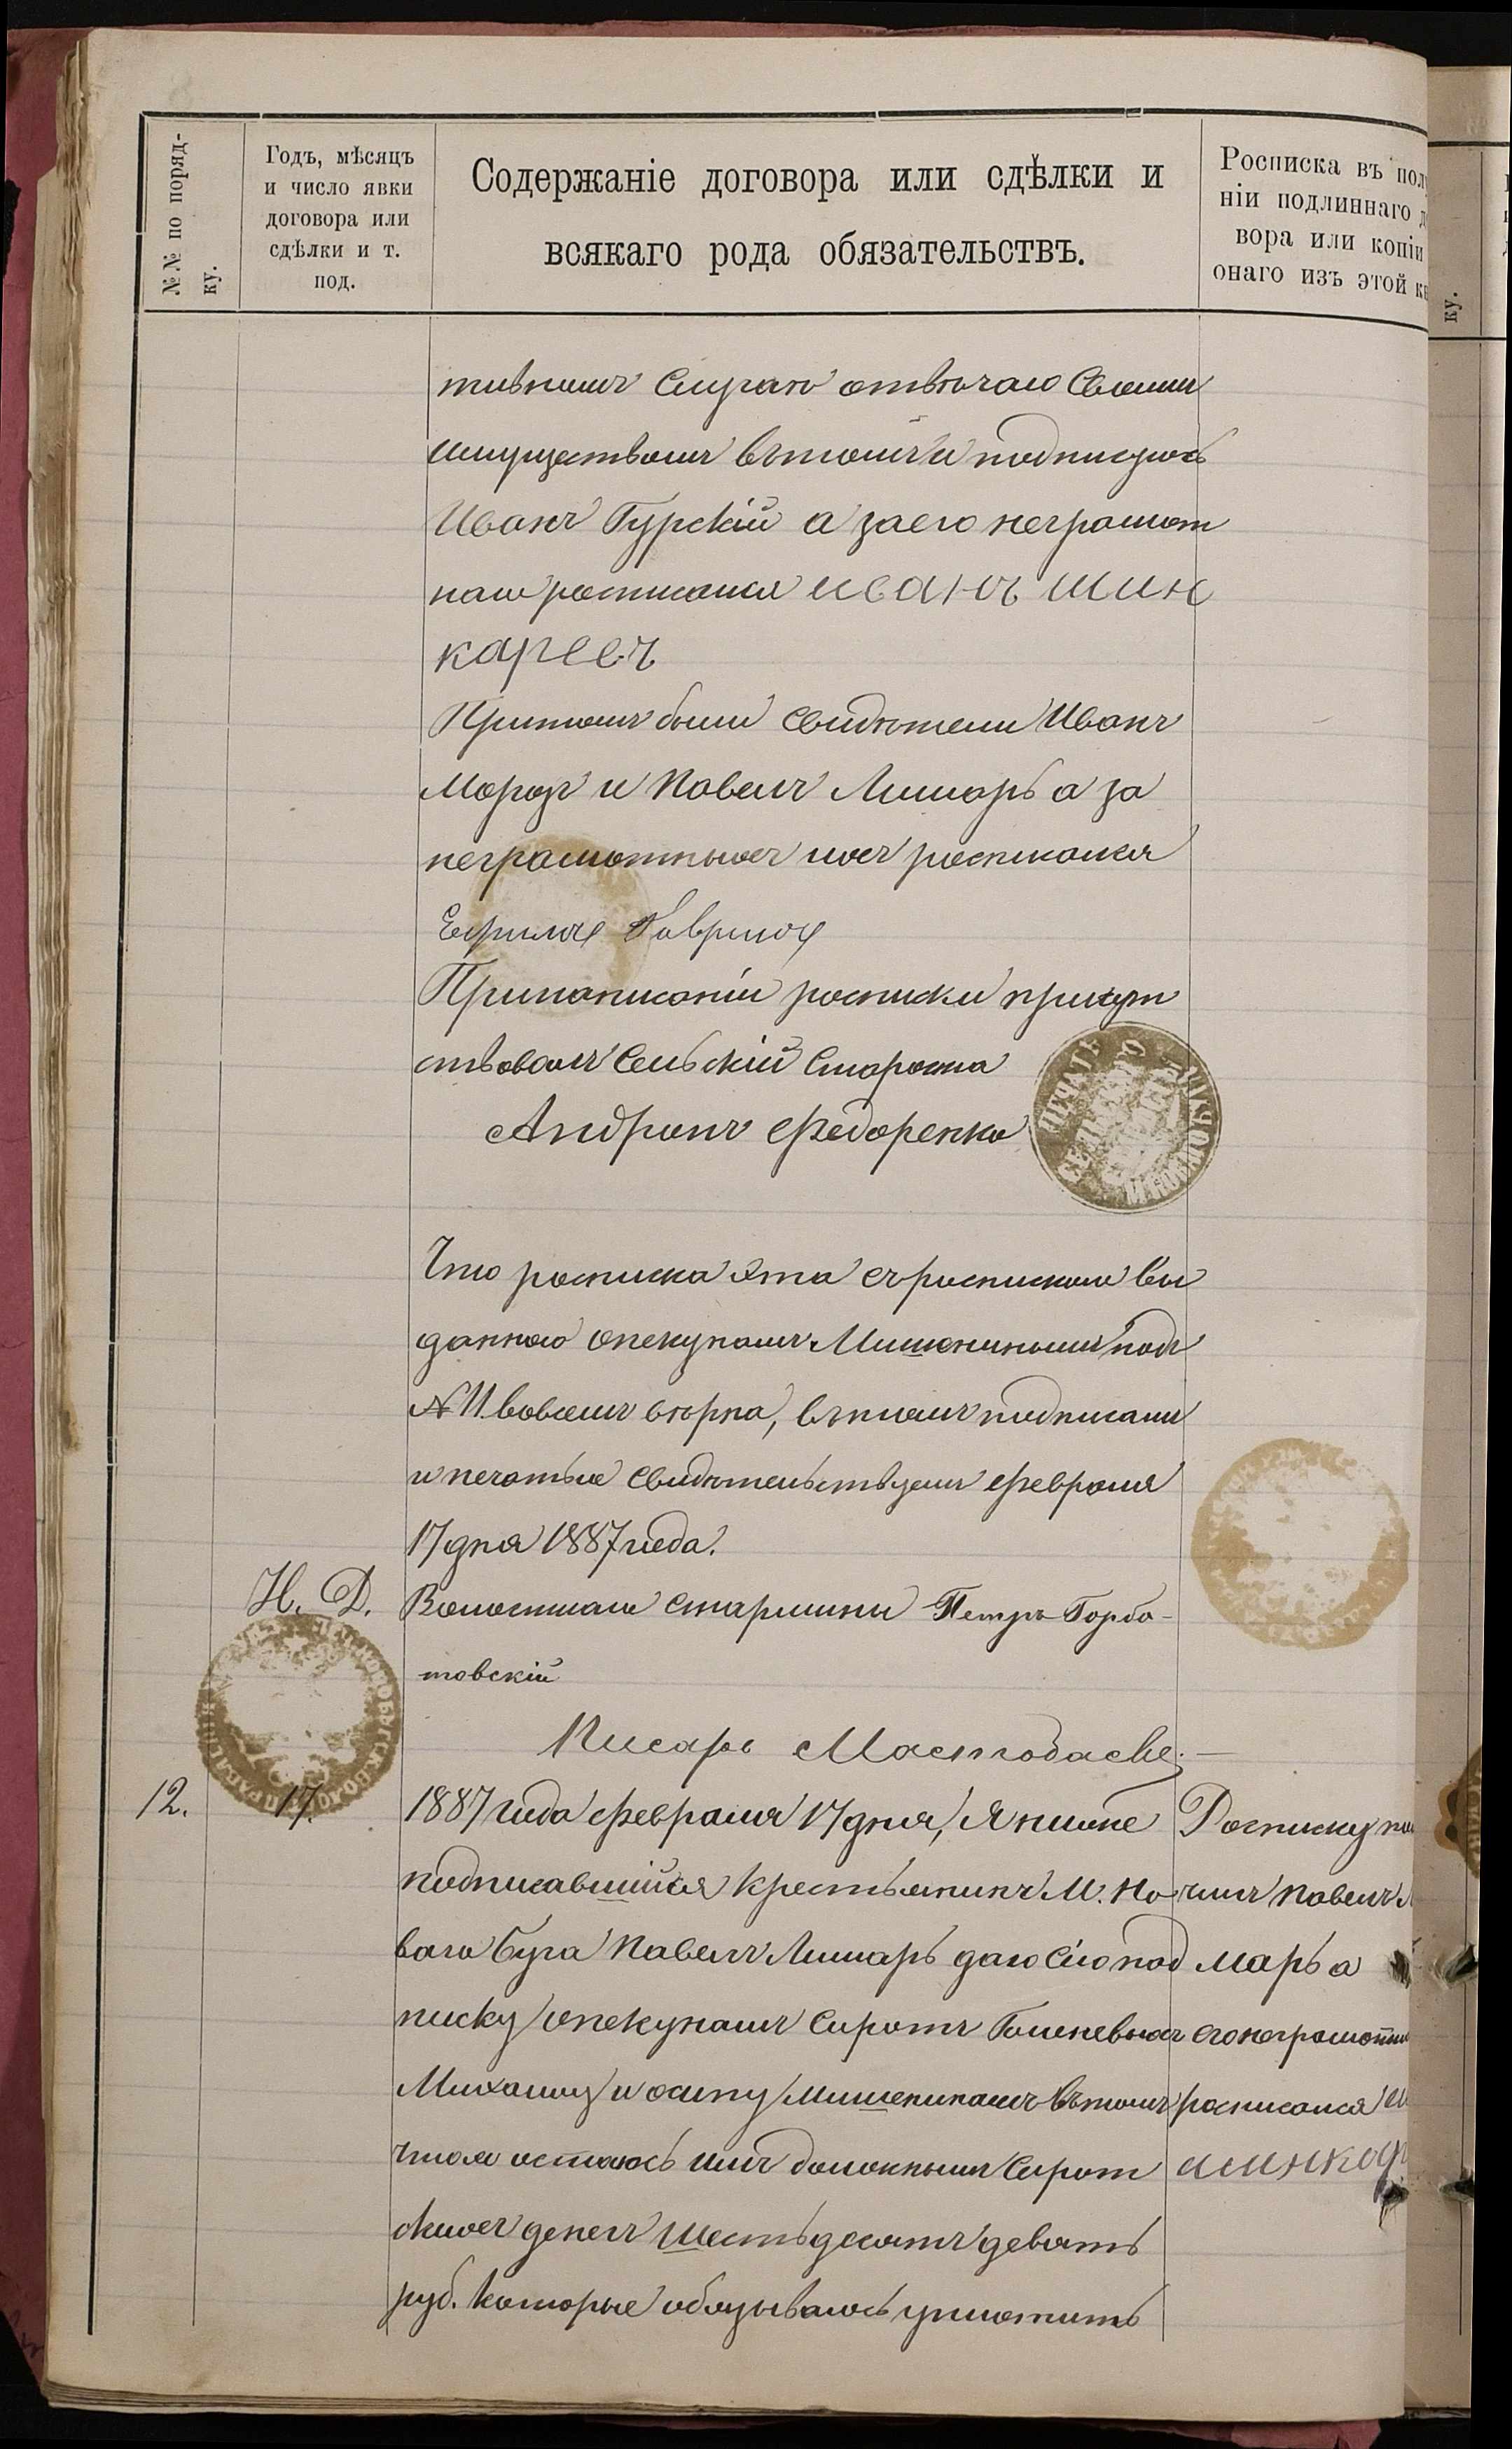 №№ по поряд-
ку.
Годъ, мѣсяцъ
и число явки
договора или
сдѣлки и т.
под.
Содержаніе договора или сдѣлки и
всякаго рода обязательствъ.
Росписка въ пол
ніи подлиннаго д
вора или копіи
онаго изъ этой кн
ку.
тивномъ случаю отвѣчаю своимъ
имуществомъ вътомъ и подписуюсь
Иванъ Гурскій а заего неграмот
наго росписался иванъ шин
каревъ
Притомъ были свидѣтели Иванъ
Морозъ и Павелъ Лимарь а за
неграмотныхъ ихъ росписался
Гаврилов
Принаписаніи росписки присут
ствовалъ Сельскій Староста
Андронъ Федоренко
ПЕЧАТЬ
Что росписка эта съроспискою вы
данною опекунамъ Мишенинымъ подъ
№ 11. вовсемъ вѣрна, въчемъ подписами
и печатью свидѣтельствуемъ февраля
17 дня 1887 года.
Н. Д. Волостнаго старшины Петръ Горба-
товскій
Писарь
12.
17.
1887 года февраля 17 дня, Я ниже
подписавшійся крестьянинъ М. Но
ваго Буга Павелъ Лимарь даю сію под
писку опекунамъ сиротъ Голеневыхъ
Михаилу и осипу Мишенинамъ вътомъ
чтоя остаюсь имъ долженымъ сирот
скихъ денегъ шестьдесятъ девять
руб. которые обязываюсь уплотить
Росписку по
чилъ Павелъ Л
марь а
его неграмотн
росписался
шинкар